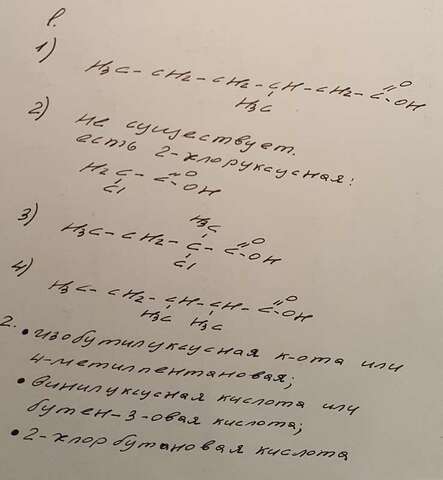 1.
1) H₃C - CH₂ - CH₂ - CH - CH₂ - C =O - OH
H₃C
2) не существует.
есть 2-хлоруксусная:
H₂C - C =O - OH
Cl
3) H₃C
H₃C - CH₂ - C - C =O - OH
Cl
4) H₃C - CH₂ - CH - CH - C =O - OH
H₃C H₃C
2. • изобутилуксусная к-ота или
4-метилпентановая;
• винилуксусная кислота или
бутен-3-овая кислота;
• 2-хлорбутановая кислота